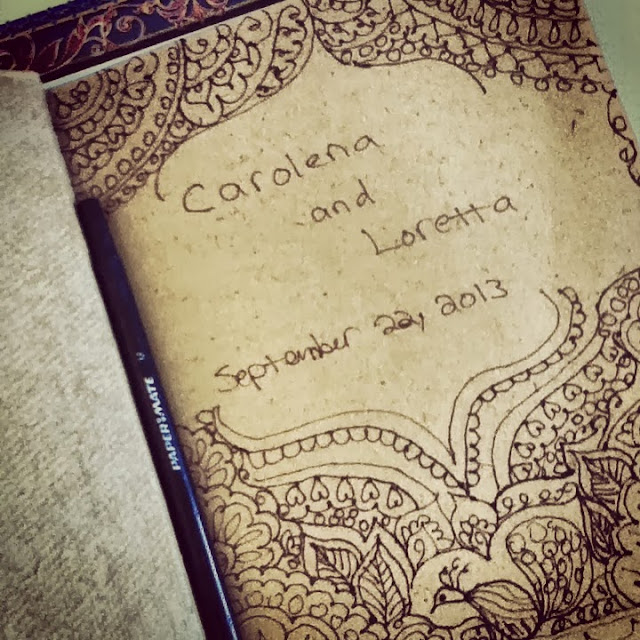 Carolena
and
Loretta
September 22, 2013
PAPER:MATE